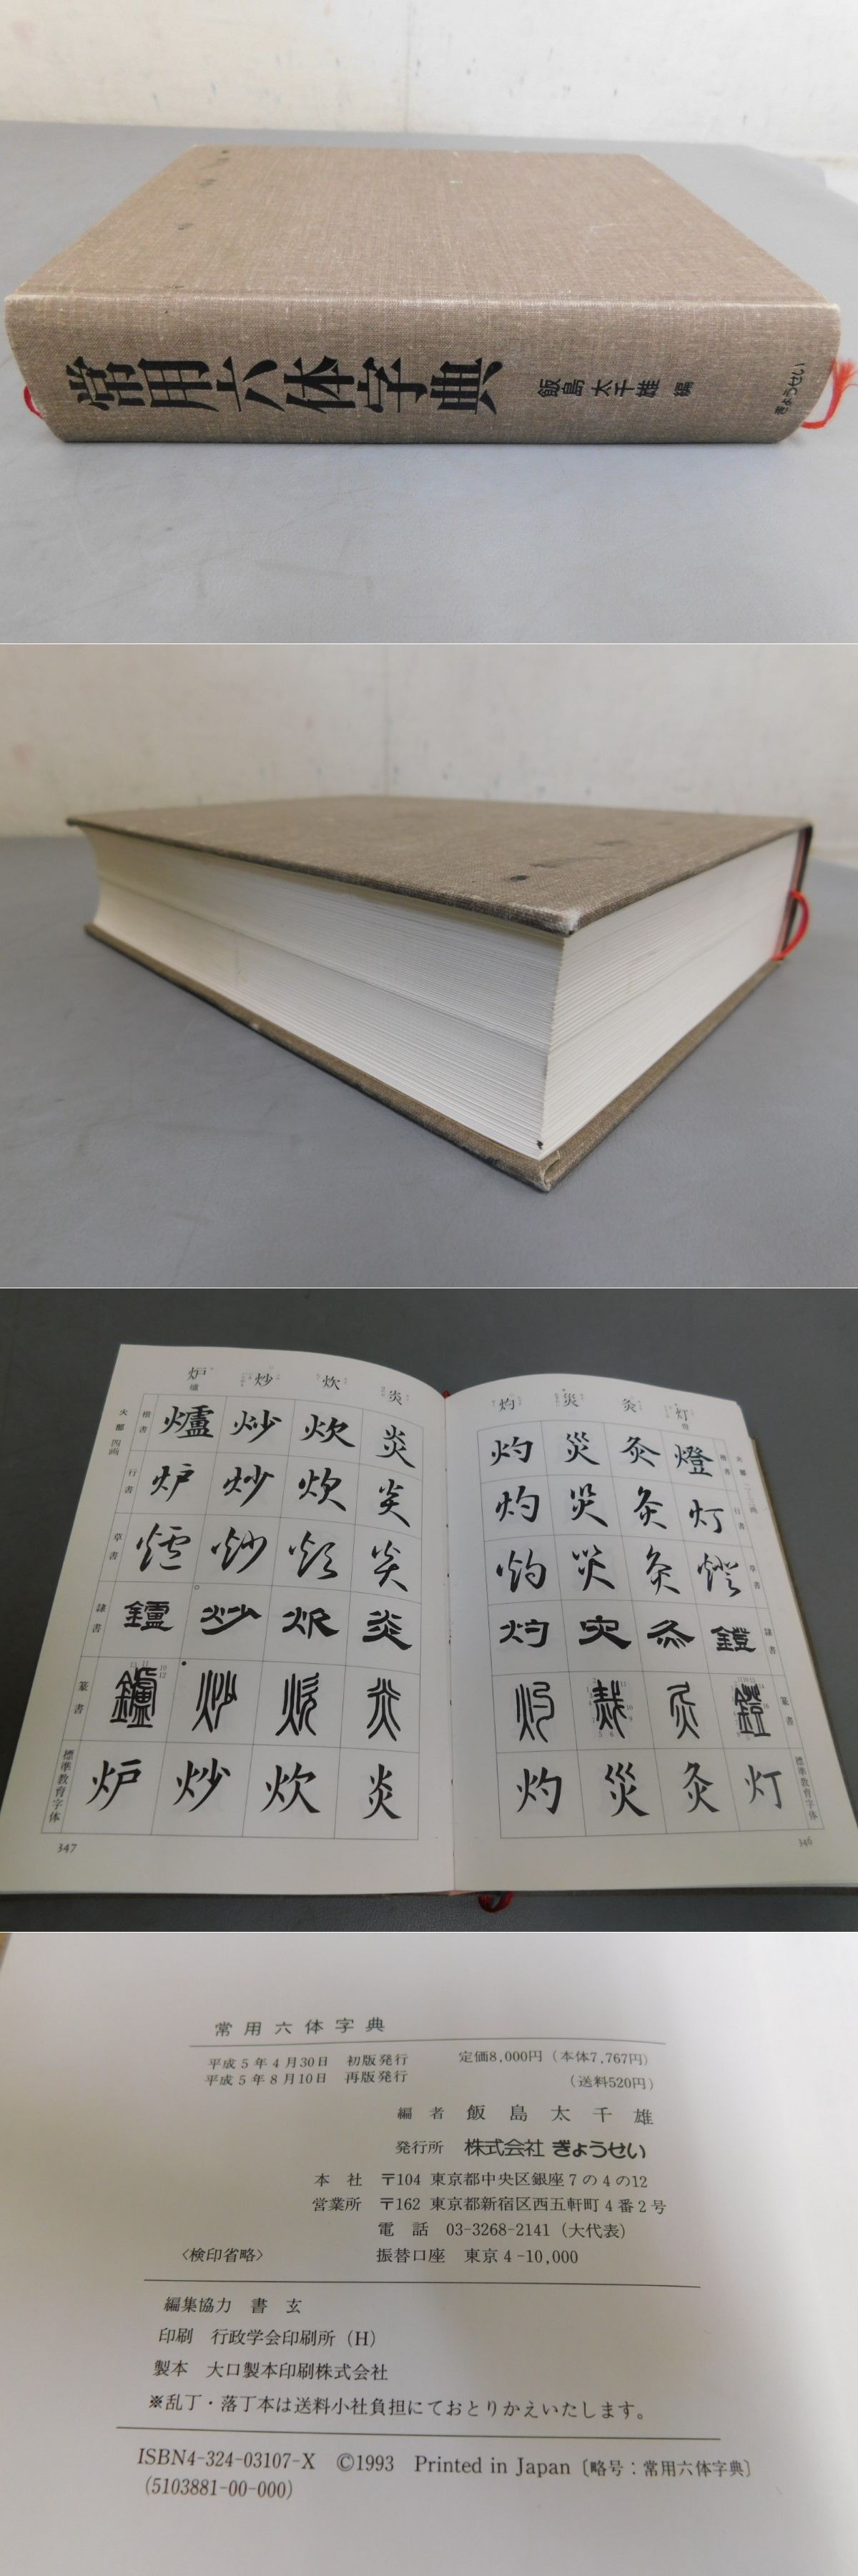 常用六体字典 飯島太千雄 編 ぎょうせい
灯 灸 災 灼
火部 二–三画
楷書 燈 灸 災 灼
行書 灯 灸 災 灼
草書 燈 灸 災 灼
隷書 鐙 灸 灾 灼
篆書
標準教育字体 灯 灸 災 灼
346
炎 炊 炒 炉 爐
火部 四画
楷書 炎 炊 炒 爐
行書 炎 炊 炒 炉
草書 炎 炊 炒 爐
隷書 炎 炊 炒 鑪
篆書
標準教育字体 炎 炊 炒 炉
347
常用六体字典
平成5年4月30日 初版発行 定価8,000円(本体7,767円)
平成5年8月10日 再版発行 (送料520円)
編者 飯島太千雄
発行所 株式会社 ぎょうせい
本社 〒104 東京都中央区銀座7の4の12
営業所 〒162 東京都新宿区西五軒町4番2号
電話 03-3268-2141(大代表)
〈検印省略〉 振替口座 東京4-10,000
編集協力 書玄
印刷 行政学会印刷所(H)
製本 大口製本印刷株式会社
※乱丁・落丁本は送料小社負担にておとりかえいたします。
ISBN4-324-03107-X ©1993 Printed in Japan〔略号:常用六体字典〕
(5103881-00-000)